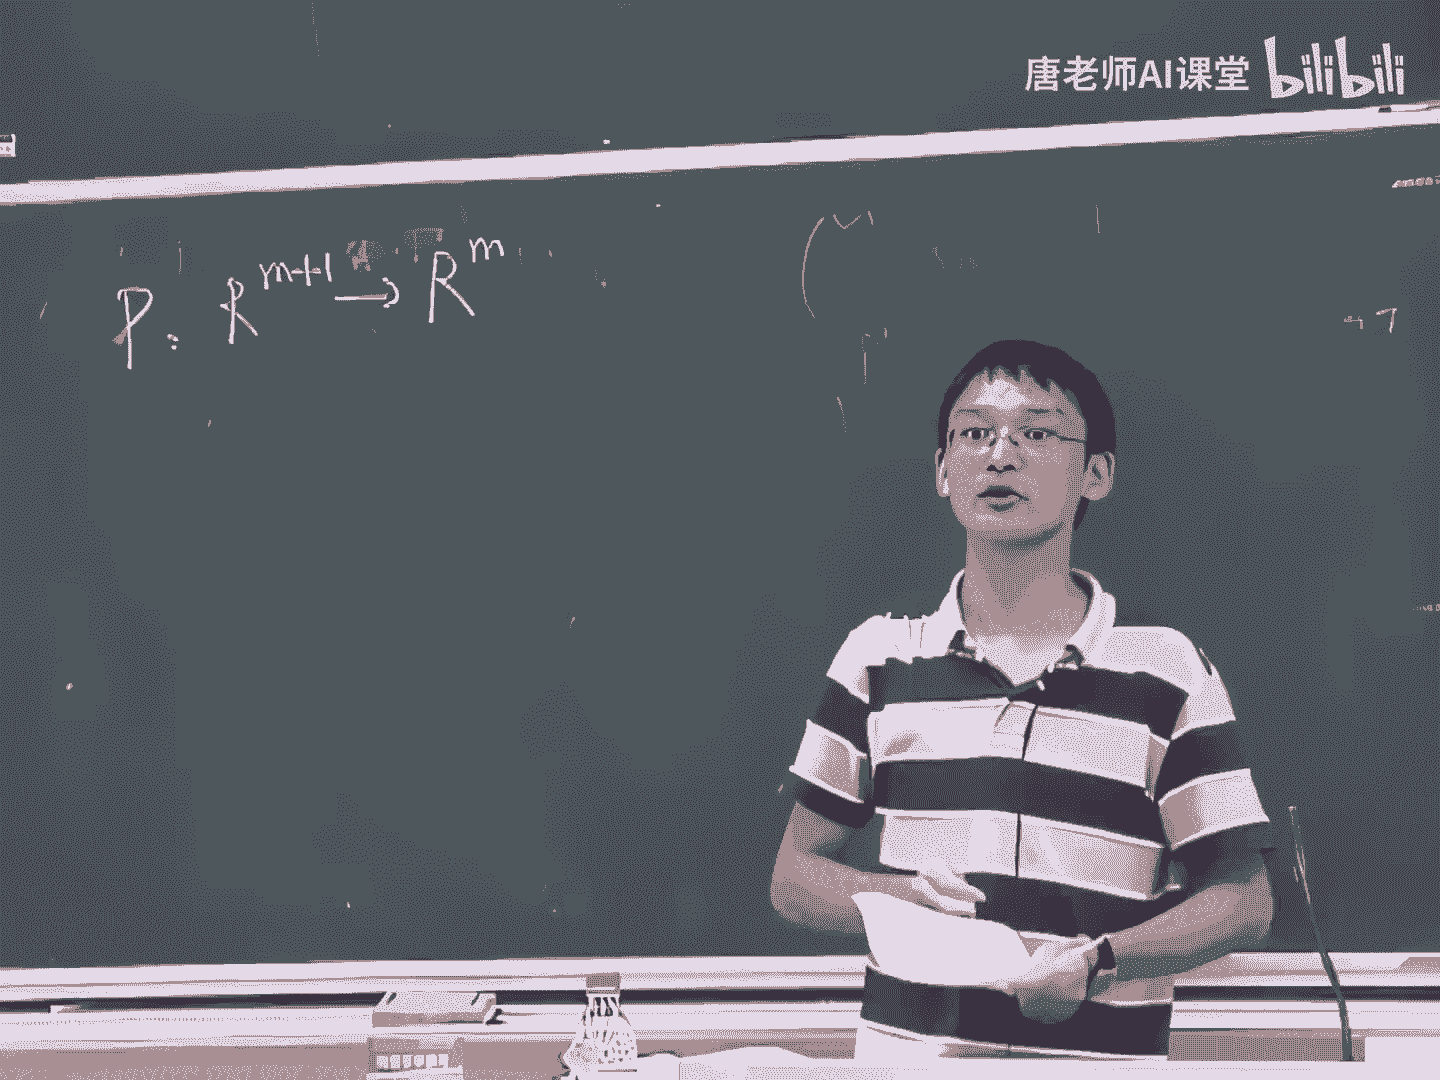 唐老师AI课堂 bilibili
P: R^{m+1} → R^m